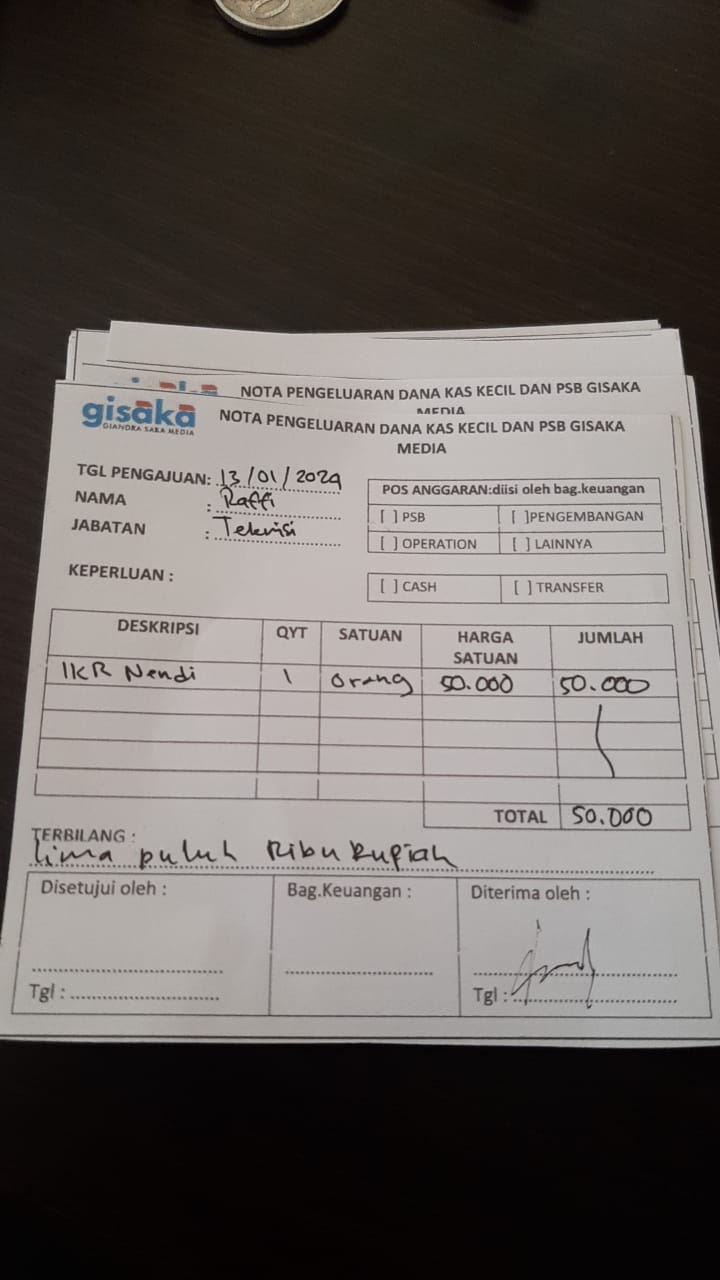 NOTA PENGELUARAN DANA KAS KECIL DAN PSB GISAKA
MEDIA
gisaka
GIANDRA SAKA MEDIA
NOTA PENGELUARAN DANA KAS KECIL DAN PSB GISAKA
MEDIA
TGL PENGAJUAN: 13/01/2029
NAMA : Raffi
JABATAN : Teknisi
POS ANGGARAN:diisi oleh bag.keuangan
[ ] PSB [ ]PENGEMBANGAN
[ ] OPERATION [ ] LAINNYA
KEPERLUAN :
[ ] CASH [ ] TRANSFER
DESKRIPSI QYT SATUAN HARGA SATUAN JUMLAH
IKR Nendi 1 Orang 50.000 50.000
TOTAL 50.000
TERBILANG :
Lima puluh Ribu Rupiah
Disetujui oleh : Bag.Keuangan : Diterima oleh :
Tgl : Tgl :